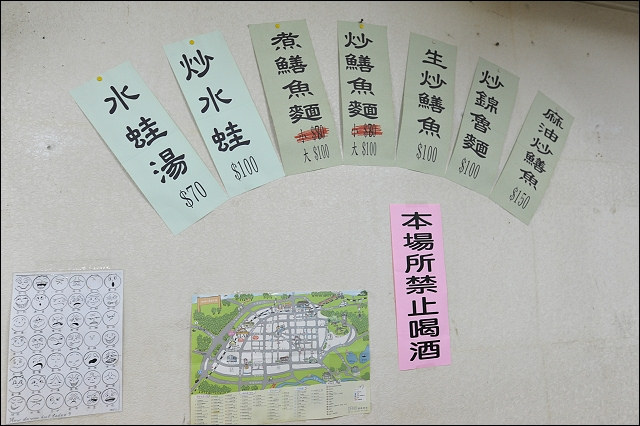 水蛙湯
$70
炒水蛙
$100
煮鱔魚麵
大 $100
炒鱔魚麵
大 $100
生炒鱔魚
$100
炒錦魯麵
$100
麻油炒鱔魚
$150
本場所禁止喝酒